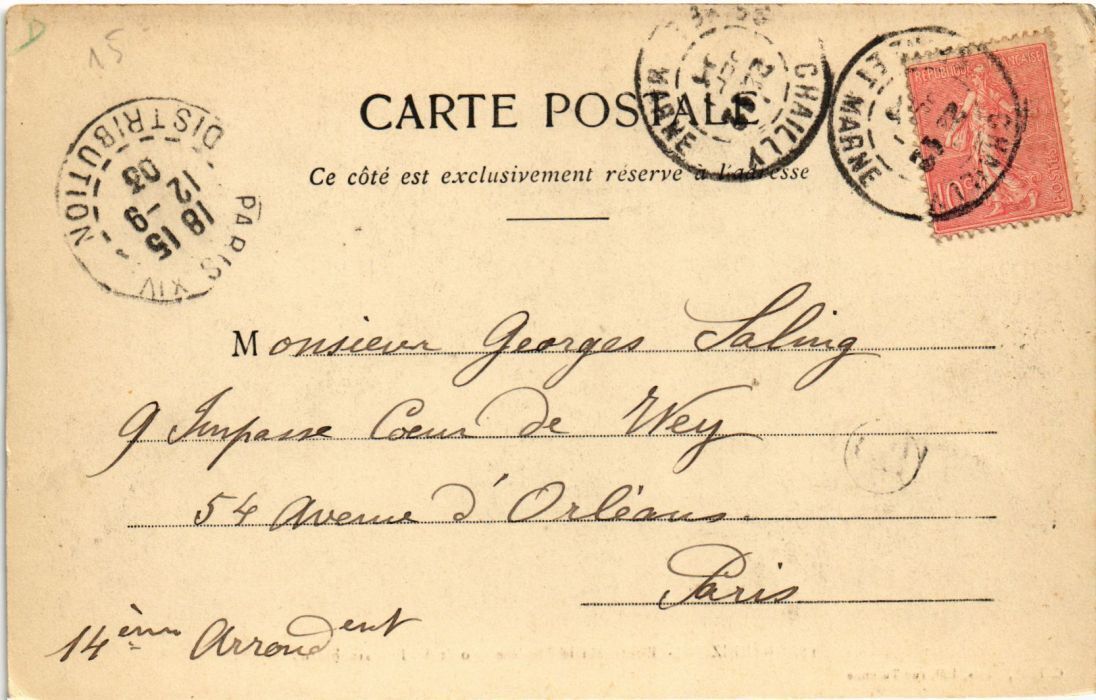 D
15
CARTE POSTALE
Ce côté est exclusivement réservé à l'adresse
CHAILLY
MARNE
RÉPUBLIQUE FRANÇAISE
10
POSTES
CHAILLY
ET MARNE
PARIS XIV
DISTRIBUTION
18 15
12 - 9
03
Monsieur Georges Saling
9 Impasse Coeur de Wey
54 Avenue d'Orléans
Paris
14ème Arrondent